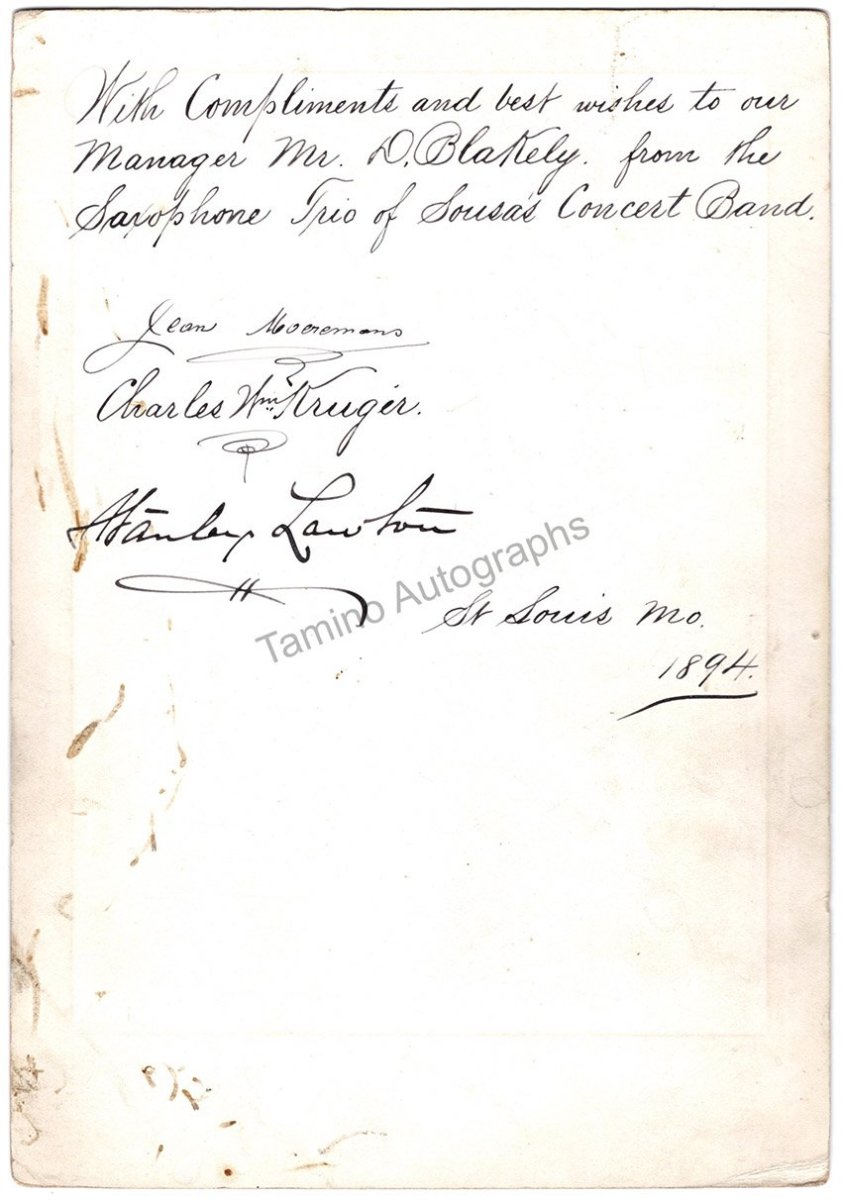 With Compliments and best wishes to our
Manager Mr. D. Blakely. from the
Saxophone Trio of Sousa's Concert Band.
Jean Moeremans
Charles Wm. Kruger.
Stanley Lawton
Tamino Autographs
St Louis Mo.
1894.